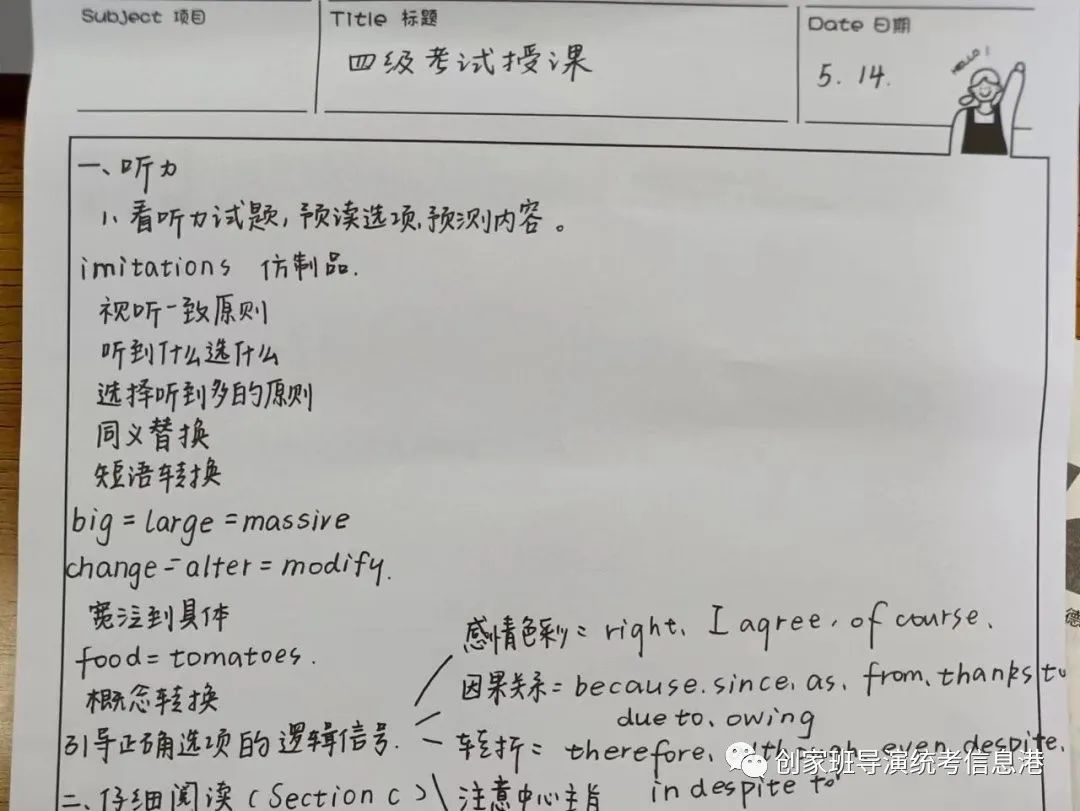 Subject 项目
Title 标题
四级考试授课
Date 日期
5. 14.
HELLO!
一、听力
1、看听力试题,预读选项,预测内容。
imitations 仿制品.
视听一致原则
听到什么选什么
选择听到多的原则
同义替换
短语转换
big = large = massive
change = alter = modify.
宽泛到具体
food = tomatoes.
概念转换
引导正确选项的逻辑信号.
感情色彩: right、I agree、of course、
因果关系= because、since、as、from、thanks to
due to、owing
转折= therefore、although、even、despite、
in despite to
注意中心主旨
二、仔细阅读(Section C)
创家班导演统考信息港
德